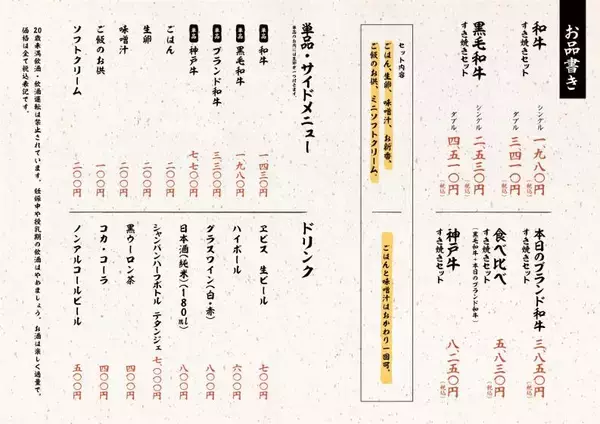 お品書き
和牛
すき焼きセット
シングル 一、九八〇円(税込)
ダブル 三、四一〇円(税込)
黒毛和牛
すき焼きセット
シングル 二、五三〇円(税込)
ダブル 四、五一〇円(税込)
本日のブランド和牛
すき焼きセット
三、八五〇円(税込)
食べ比べ
すき焼きセット
(黒毛和牛+本日のブランド和牛)
五、八三〇円(税込)
神戸牛
すき焼きセット
八、二五〇円(税込)
セット内容
ごはん、生卵、味噌汁、お新香、
ご飯のお供、ミニソフトクリーム、
ごはんと味噌汁はおかわり一回可。
単品・サイドメニュー
単品 和牛 一、四三〇円
単品 黒毛和牛 一、九八〇円
単品 ブランド和牛 三、三〇〇円
単品 神戸牛 七、七〇〇円
ごはん 二〇〇円
生卵 二〇〇円
味噌汁 二〇〇円
ご飯のお供 一〇〇円
ソフトクリーム 二〇〇円
ドリンク
ヱビス 生ビール 七〇〇円
ハイボール 六〇〇円
グラスワイン(白・赤) 八〇〇円
日本酒(純米)(180ml) 八〇〇円
シャンパンハーフボトル テタンジェ 七、〇〇〇円
黒ウーロン茶 四〇〇円
コカ・コーラ 四〇〇円
ノンアルコールビール 五〇〇円
20歳未満飲酒・飲酒運転は禁止されています。妊娠中や授乳期の飲酒はやめましょう。お酒は楽しく適量で。
価格は全て税込表記です。